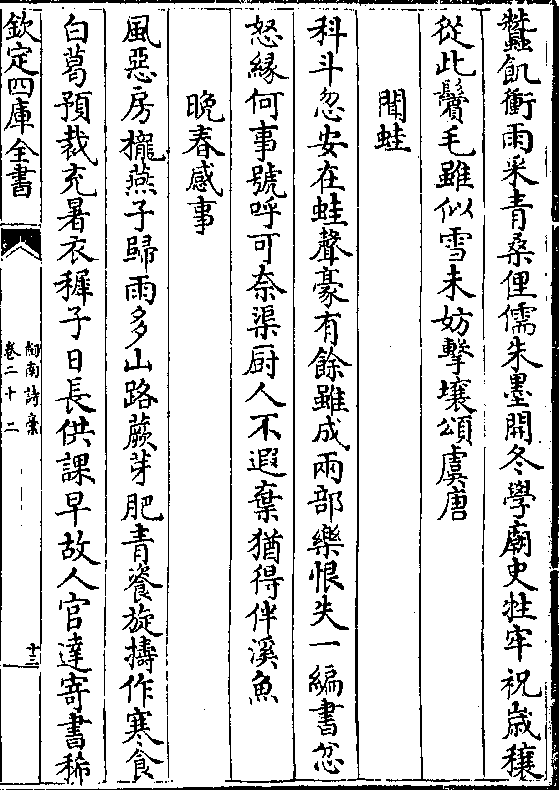 蠶飢衝雨采青桑俚儒朱墨開冬學廟史牲牢祝嵗穰
從此鬢毛雖似雪未妨擊壤頌虞唐
聞蛙
科斗忽安在蛙聲豪有餘雖成兩部樂恨失一編書忿
怒緣何事號呼可奈渠厨人不遐棄猶得伴溪魚
晩春感事
風惡房櫳燕子歸雨多山路蕨芽肥青餐旋擣作寒食
白葛預裁充暑衣穉子日長供課早故人官達寄書稀
欽定四庫全書
劒南詩稾
卷二十二
十三